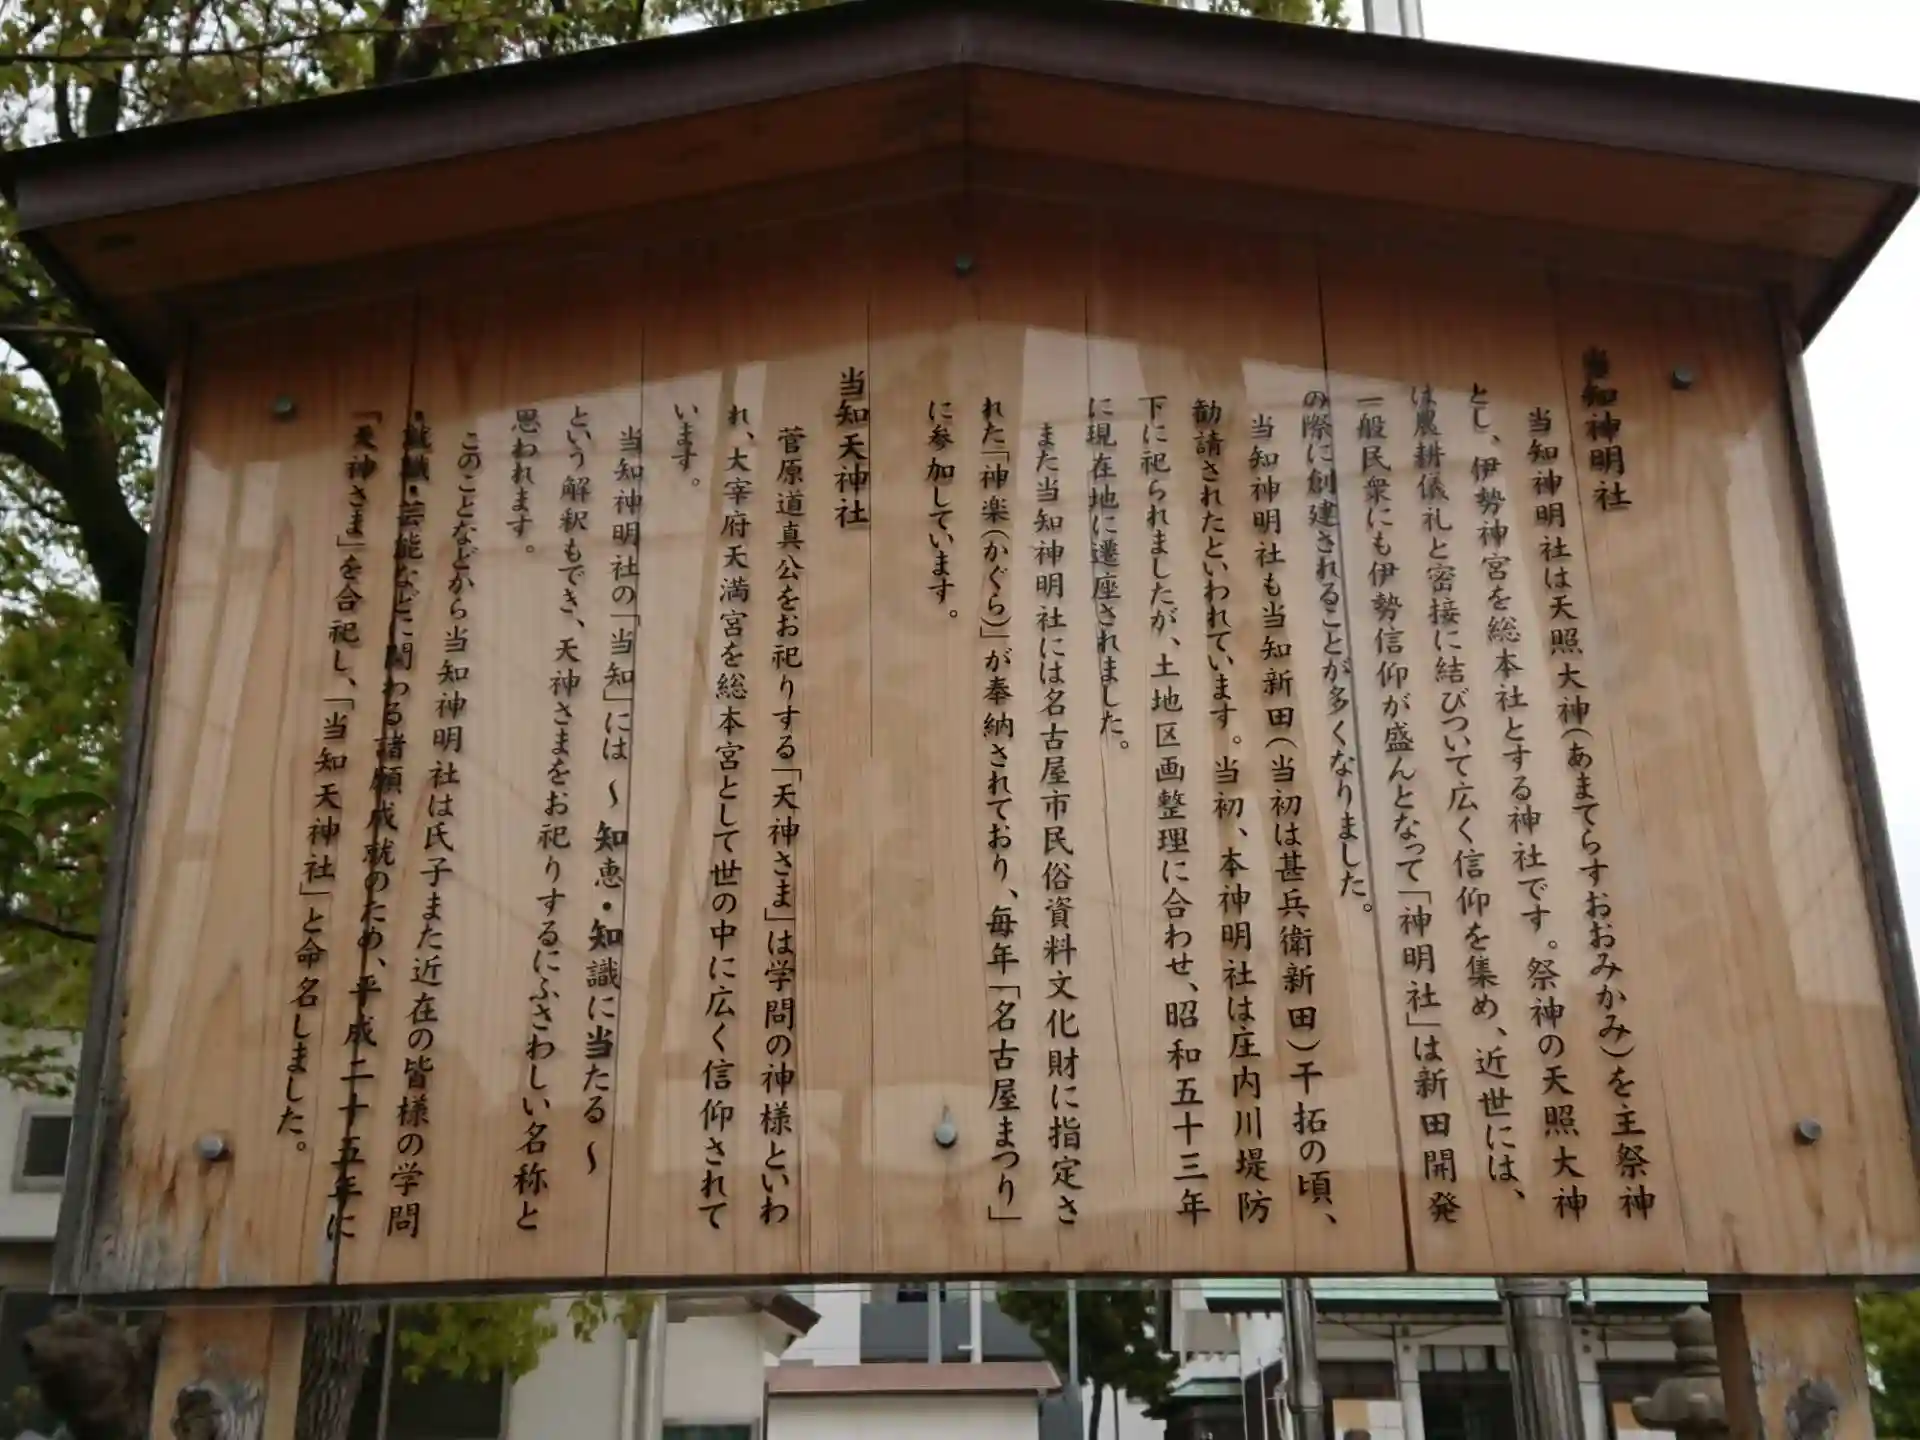 当知神明社
当知神明社は天照大神(あまてらすおおみかみ)を主祭神
とし、伊勢神宮を総本社とする神社です。祭神の天照大神
は農耕儀礼と密接に結びついて広く信仰を集め、近世には、
一般民衆にも伊勢信仰が盛んとなって「神明社」は新田開発
の際に創建されることが多くなりました。
当知神明社も当知新田(当初は甚兵衛新田)干拓の頃、
勧請されたといわれています。当初、本神明社は庄内川堤防
下に祀られましたが、土地区画整理に合わせ、昭和五十三年
に現在地に遷座されました。
また当知神明社には名古屋市民俗資料文化財に指定さ
れた「神楽(かぐら)」が奉納されており、毎年「名古屋まつり」
に参加しています。
当知天神社
菅原道真公をお祀りする「天神さま」は学問の神様といわ
れ、大宰府天満宮を総本宮として世の中に広く信仰されて
います。
当知神明社の「当知」には～知恵・知識に当たる～
という解釈もでき、天神さまをお祀りするにふさわしい名称と
思われます。
このことなどから当知神明社は氏子また近在の皆様の学問
・芸能などに関わる諸願成就のため、平成二十五年に
「天神さま」を合祀し、「当知天神社」と命名しました。